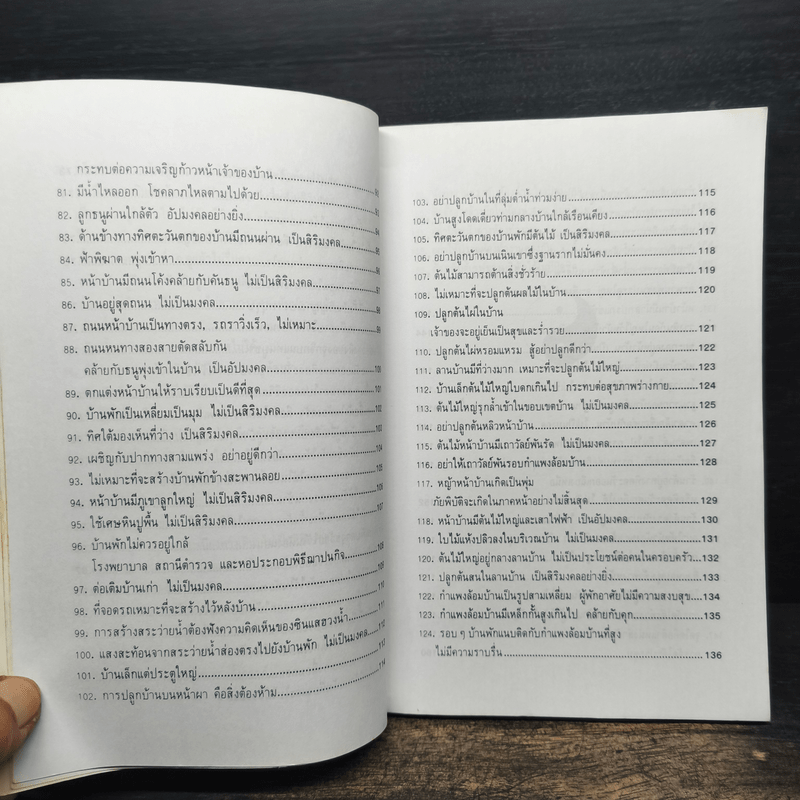 กระทบต่อความเจริญก้าวหน้าเจ้าของบ้าน
81. มีน้ำไหลออก โชคลาภไหลตามไปด้วย
82. ลูกธนูผ่านใกล้ตัว อัปมงคลอย่างยิ่ง
83. ด้านข้างทางทิศตะวันตกของบ้านมีถนนผ่าน เป็นสิริมงคล
84. ฟ้าพิฆาต พุ่งเข้าหา
85. หน้าบ้านมีถนนโค้งคล้ายกับคันธนู ไม่เป็นสิริมงคล
86. บ้านอยู่สุดถนน ไม่เป็นมงคล
87. ถนนหน้าบ้านเป็นทางตรง, รถราวิ่งเร็ว, ไม่เหมาะ 99
88. ถนนหนทางสองสายตัดสลับกัน
คล้ายกับธนูพุ่งเข้าในบ้าน เป็นอัปมงคล 100
89. ตกแต่งหน้าบ้านให้ราบเรียบเป็นดีที่สุด 101
90. บ้านพักเป็นเหลี่ยมเป็นมุม ไม่เป็นสิริมงคล 102
91. ทิศใต้มองเห็นที่ว่าง เป็นสิริมงคล 103
92. เผชิญกับปากทางสามแพร่ง อย่าอยู่ดีกว่า 104
93. ไม่เหมาะที่จะสร้างบ้านพักข้างสะพานลอย 105
94. หน้าบ้านมีภูเขาลูกใหญ่ ไม่เป็นสิริมงคล 106
95. ใช้เศษหินปูพื้น ไม่เป็นสิริมงคล 107
96. บ้านพักไม่ควรอยู่ใกล้
โรงพยาบาล สถานีตำรวจ และหอประกอบพิธีฌาปนกิจ 108
97. ต่อเติมบ้านเก่า ไม่เป็นมงคล 109
98. ที่จอดรถเหมาะที่จะสร้างไว้หลังบ้าน 110
99. การสร้างสระว่ายน้ำต้องฟังความคิดเห็นของซินแสฮวงน้ำ 111
100. แสงสะท้อนจากสระว่ายน้ำส่องตรงไปยังบ้านพัก ไม่เป็นมงคล 112
101. บ้านเล็กแต่ประตูใหญ่ 113
102. การปลูกบ้านบนหน้าผา คือสิ่งต้องห้าม 114
103. อย่าปลูกบ้านในที่ลุ่มต่ำน้ำท่วมง่าย 115
104. บ้านสูงโดดเดี่ยวท่ามกลางบ้านใกล้เรือนเคียง 116
105. ทิศตะวันตกของบ้านพักมีต้นไม้ เป็นสิริมงคล 117
106. อย่าปลูกบ้านบนเนินเขาซึ่งฐานรากไม่มั่นคง 118
107. ต้นไม้สามารถต้านสิ่งชั่วร้าย 119
108. ไม่เหมาะที่จะปลูกต้นผลไม้ในบ้าน 120
109. ปลูกต้นไผ่ในบ้าน
เจ้าของจะอยู่เย็นเป็นสุขและร่ำรวย 121
110. ปลูกต้นไผ่หรอมแหรม สู้อย่าปลูกดีกว่า 122
111. ลานบ้านมีที่ว่างมาก เหมาะที่จะปลูกต้นไม้ใหญ่ 123
112. บ้านเล็กต้นไม้ใหญ่ใบดกเกินไป กระทบต่อสุขภาพร่างกาย 124
113. ต้นไม้ใหญ่รุกล้ำเข้าในขอบเขตบ้าน ไม่เป็นมงคล 125
114. อย่าปลูกต้นหลิวหน้าบ้าน 126
115. ต้นไม้หน้าบ้านมีเถาวัลย์พันรัด ไม่เป็นมงคล 127
116. อย่าให้เถาวัลย์พันรอบกำแพงล้อมบ้าน 128
117. หญ้าหน้าบ้านเกิดเป็นพุ่ม
ภัยพิบัติจะเกิดในภาคหน้าอย่างไม่สิ้นสุด 129
118. หน้าบ้านมีต้นไม้ใหญ่และเสาไฟฟ้า เป็นอัปมงคล 130
119. ใบไม้แห้งปลิวลงในบริเวณบ้าน ไม่เป็นมงคล 131
120. ต้นไม้ใหญ่อยู่กลางลานบ้าน ไม่เป็นประโยชน์ต่อคนในครอบครัว 132
121. ปลูกต้นสนในลานบ้าน เป็นสิริมงคลอย่างยิ่ง 133
122. กำแพงล้อมบ้านเป็นรูปสามเหลี่ยม ผู้พักอาศัยไม่มีความสงบสุข 134
123. กำแพงล้อมบ้านมีเหล็กกั้นสูงเกินไป คล้ายกับคุก 135
124. รอบ ๆ บ้านพักแนบติดกับกำแพงล้อมบ้านที่สูง
ไม่มีความราบรื่น 136